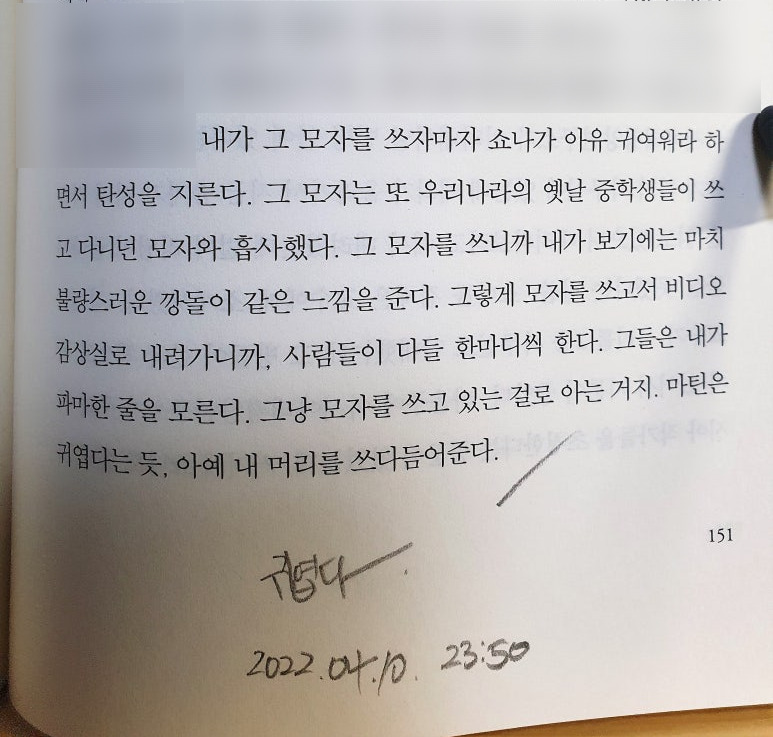 내가 그 모자를 쓰자마자 쇼나가 아유 귀여워라 하
면서 탄성을 지른다. 그 모자는 또 우리나라의 옛날 중학생들이 쓰
고 다니던 모자와 흡사했다. 그 모자를 쓰니까 내가 보기에는 마치
불량스러운 깡돌이 같은 느낌을 준다. 그렇게 모자를 쓰고서 비디오
감상실로 내려가니까, 사람들이 다들 한마디씩 한다. 그들은 내가
파마한 줄을 모른다. 그냥 모자를 쓰고 있는 걸로 아는 거지. 마틴은
귀엽다는 듯, 아예 내 머리를 쓰다듬어준다.
151
귀엽다
2022.04.10. 23:50